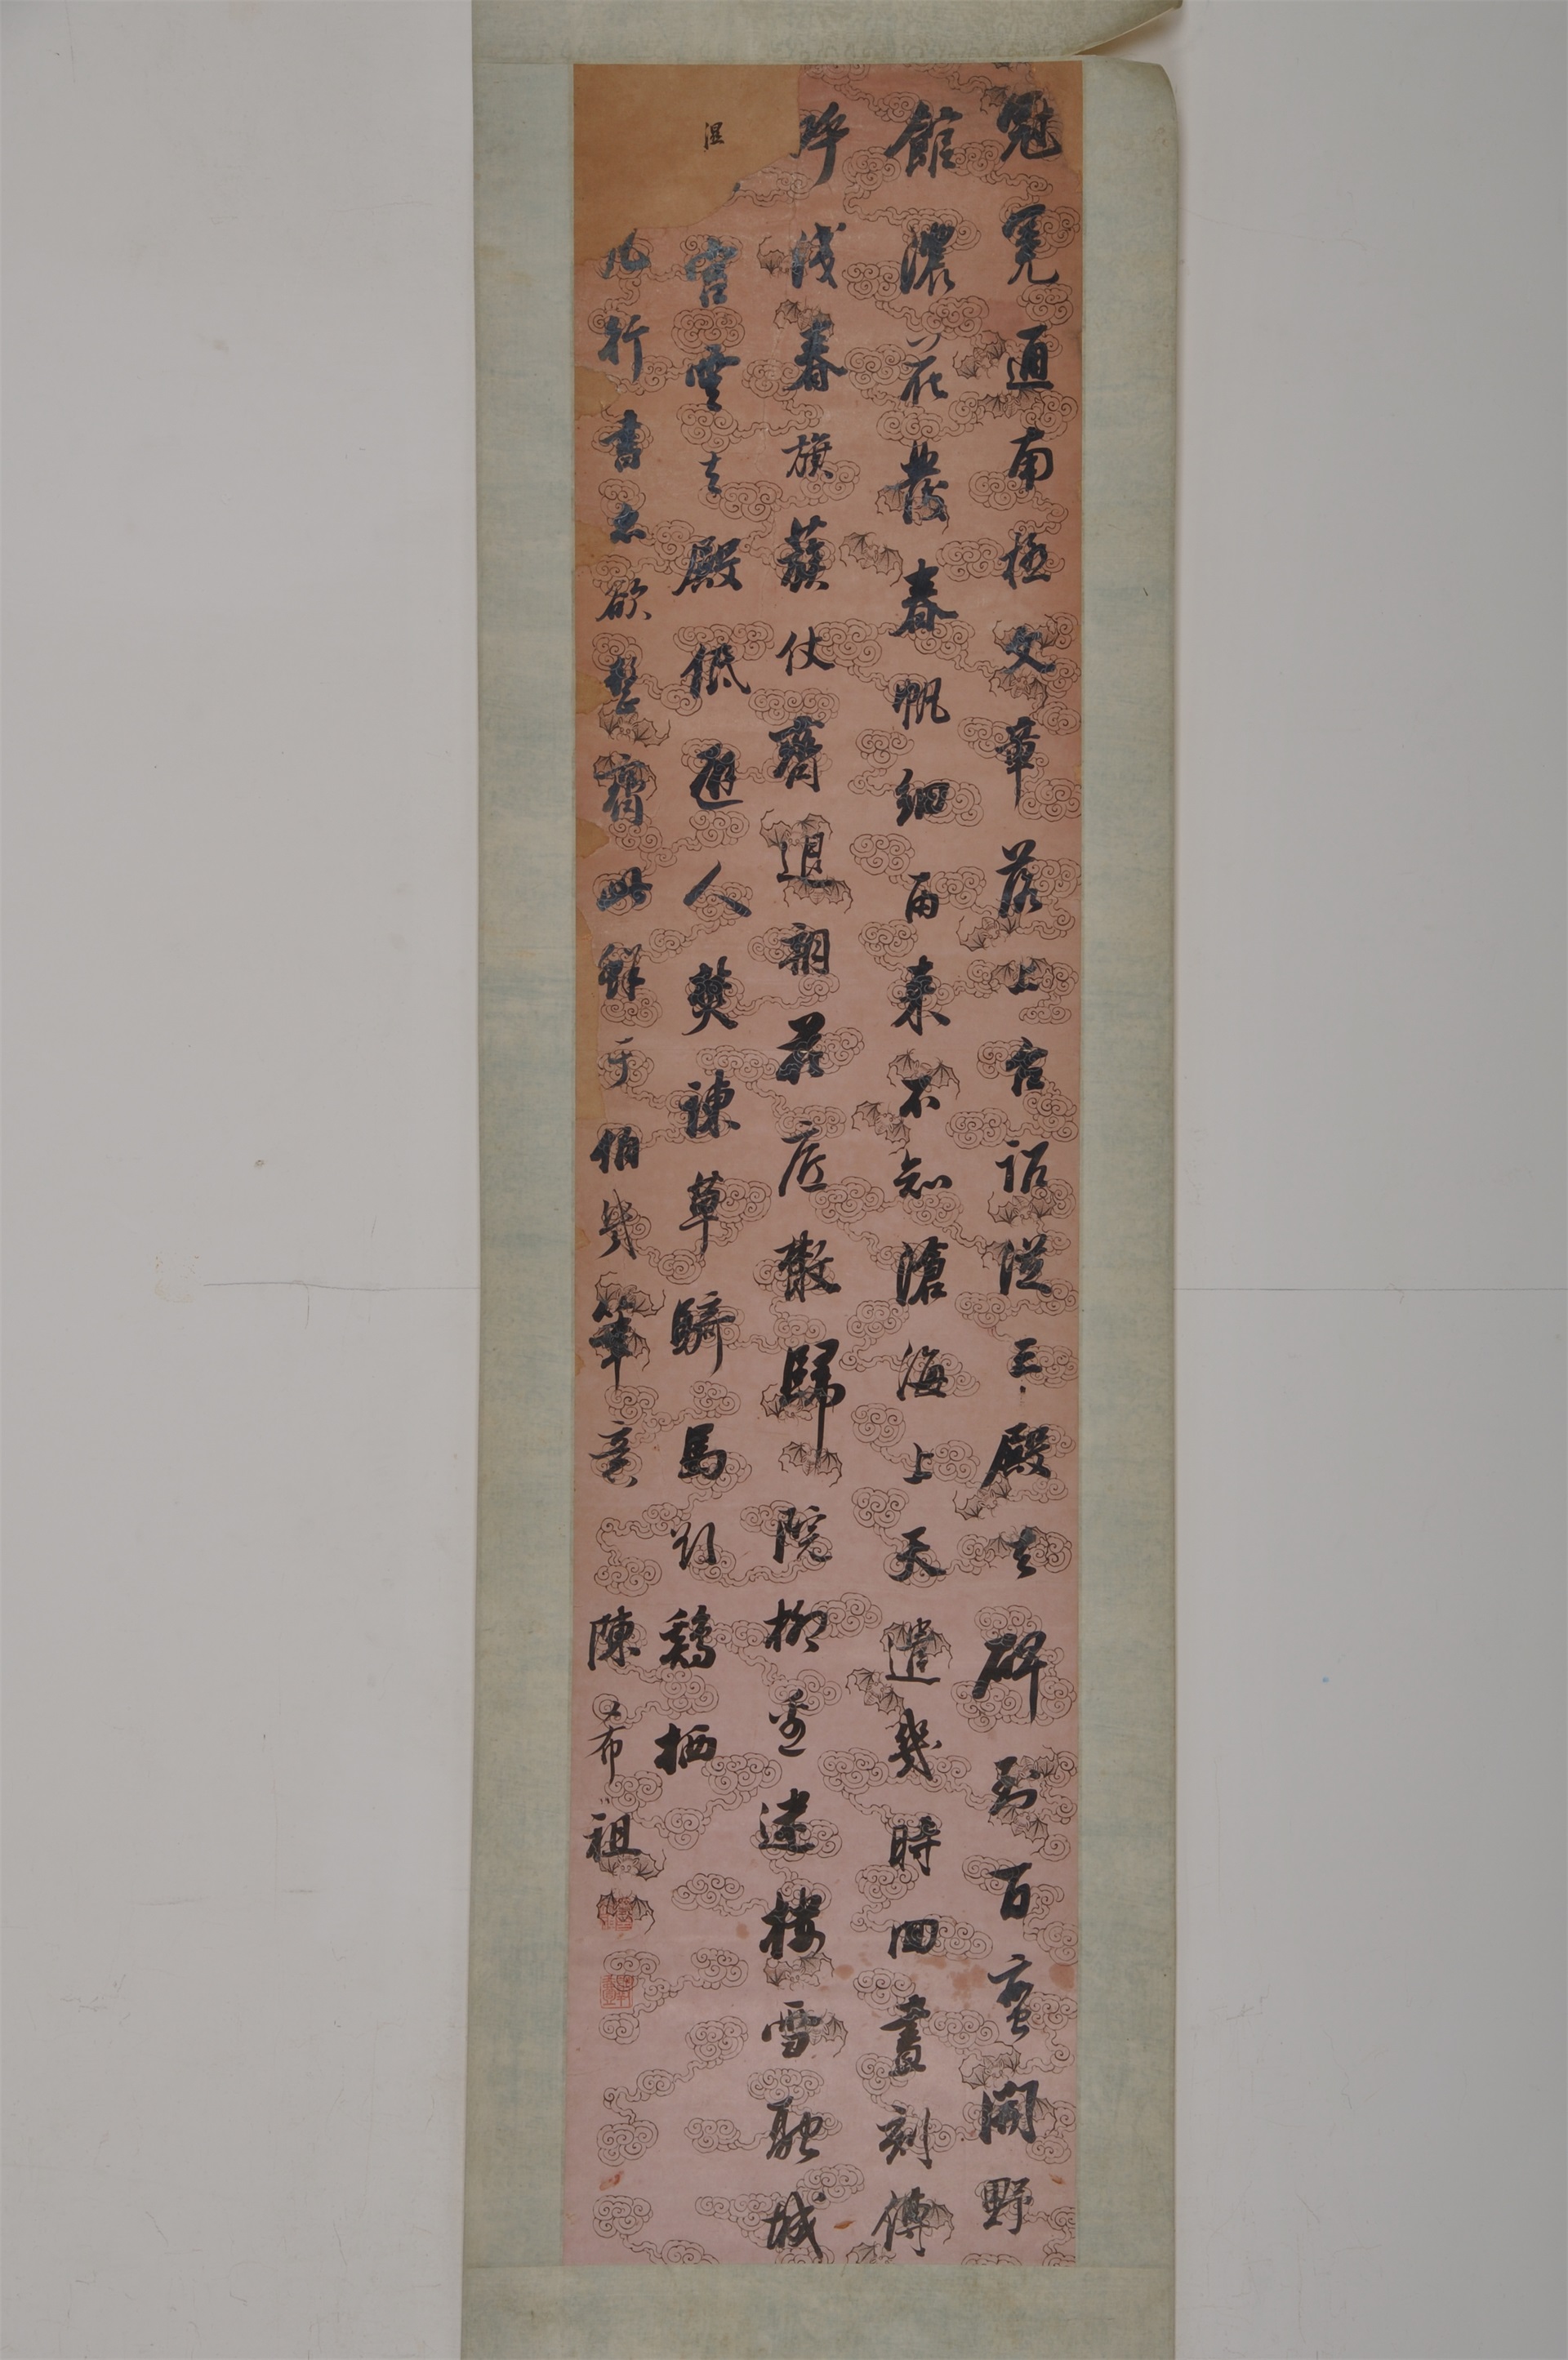 冠冕通南極文章落上台詔從三殿去碑到百蠻開野
館濃花發春帆細雨來不知滄海上天遣幾時回晝刻傳
呼淺春旗簇仗齊退朝花底散歸院柳邊迷樓雪融城
湿宮雲去殿低避人焚諫草騎馬雞栖
凡行書忌欲整齊此鮮于伯幾筆意陳希祖